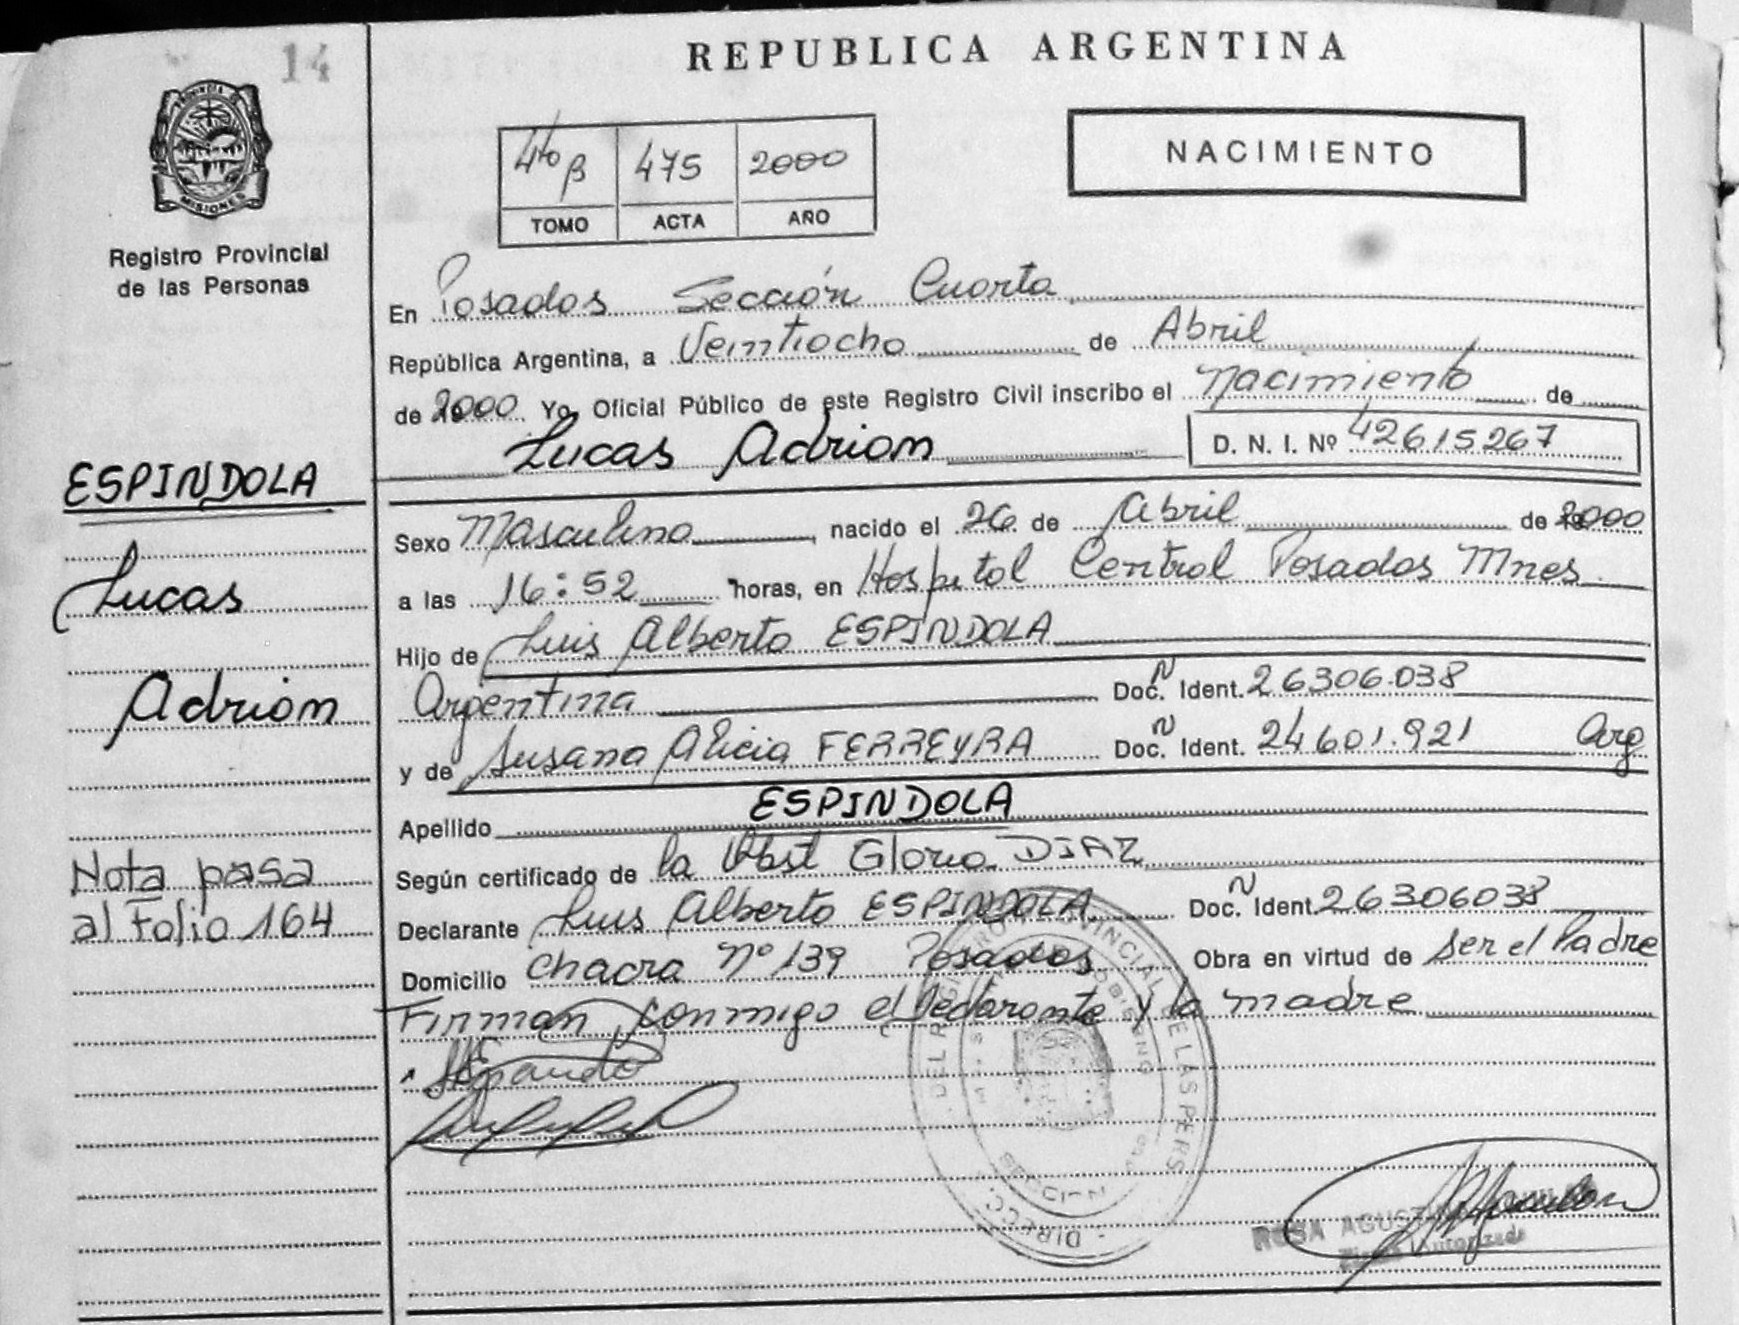 14
REPUBLICA ARGENTINA
PROVINCIA DE
MISIONES
Registro Provincial
de las Personas
4to B 475 2000
TOMO ACTA AÑO
NACIMIENTO
En Posadas Sección Cuarta
República Argentina, a Veintiocho de Abril
de 2000 Yo, Oficial Público de este Registro Civil inscribo el nacimiento de
Lucas Adrian D. N. I. Nº 42615267
ESPINDOLA
Lucas
Adrian
Sexo Masculino, nacido el 26 de Abril de 2000
a las 16:52 horas, en Hospital Central Posadas Mnes
Hijo de Luis Alberto ESPINDOLA
Argentina N Doc. Ident. 26306.038
y de Susana Alicia FERREYRA N Doc. Ident. 24601.921 Arg
Apellido ESPINDOLA
Según certificado de la Obst Gloria DIAZ
Declarante Luis Alberto ESPINDOLA N Doc. Ident. 26306038
Domicilio Chacra Nº 139 Posadas Obra en virtud de Ser el Padre
Firman conmigo el Declarante y la madre
Nota pasa
al Folio 164
DIRECC. DEL REGISTRO PROVINCIAL DE LAS PERS
ROSA